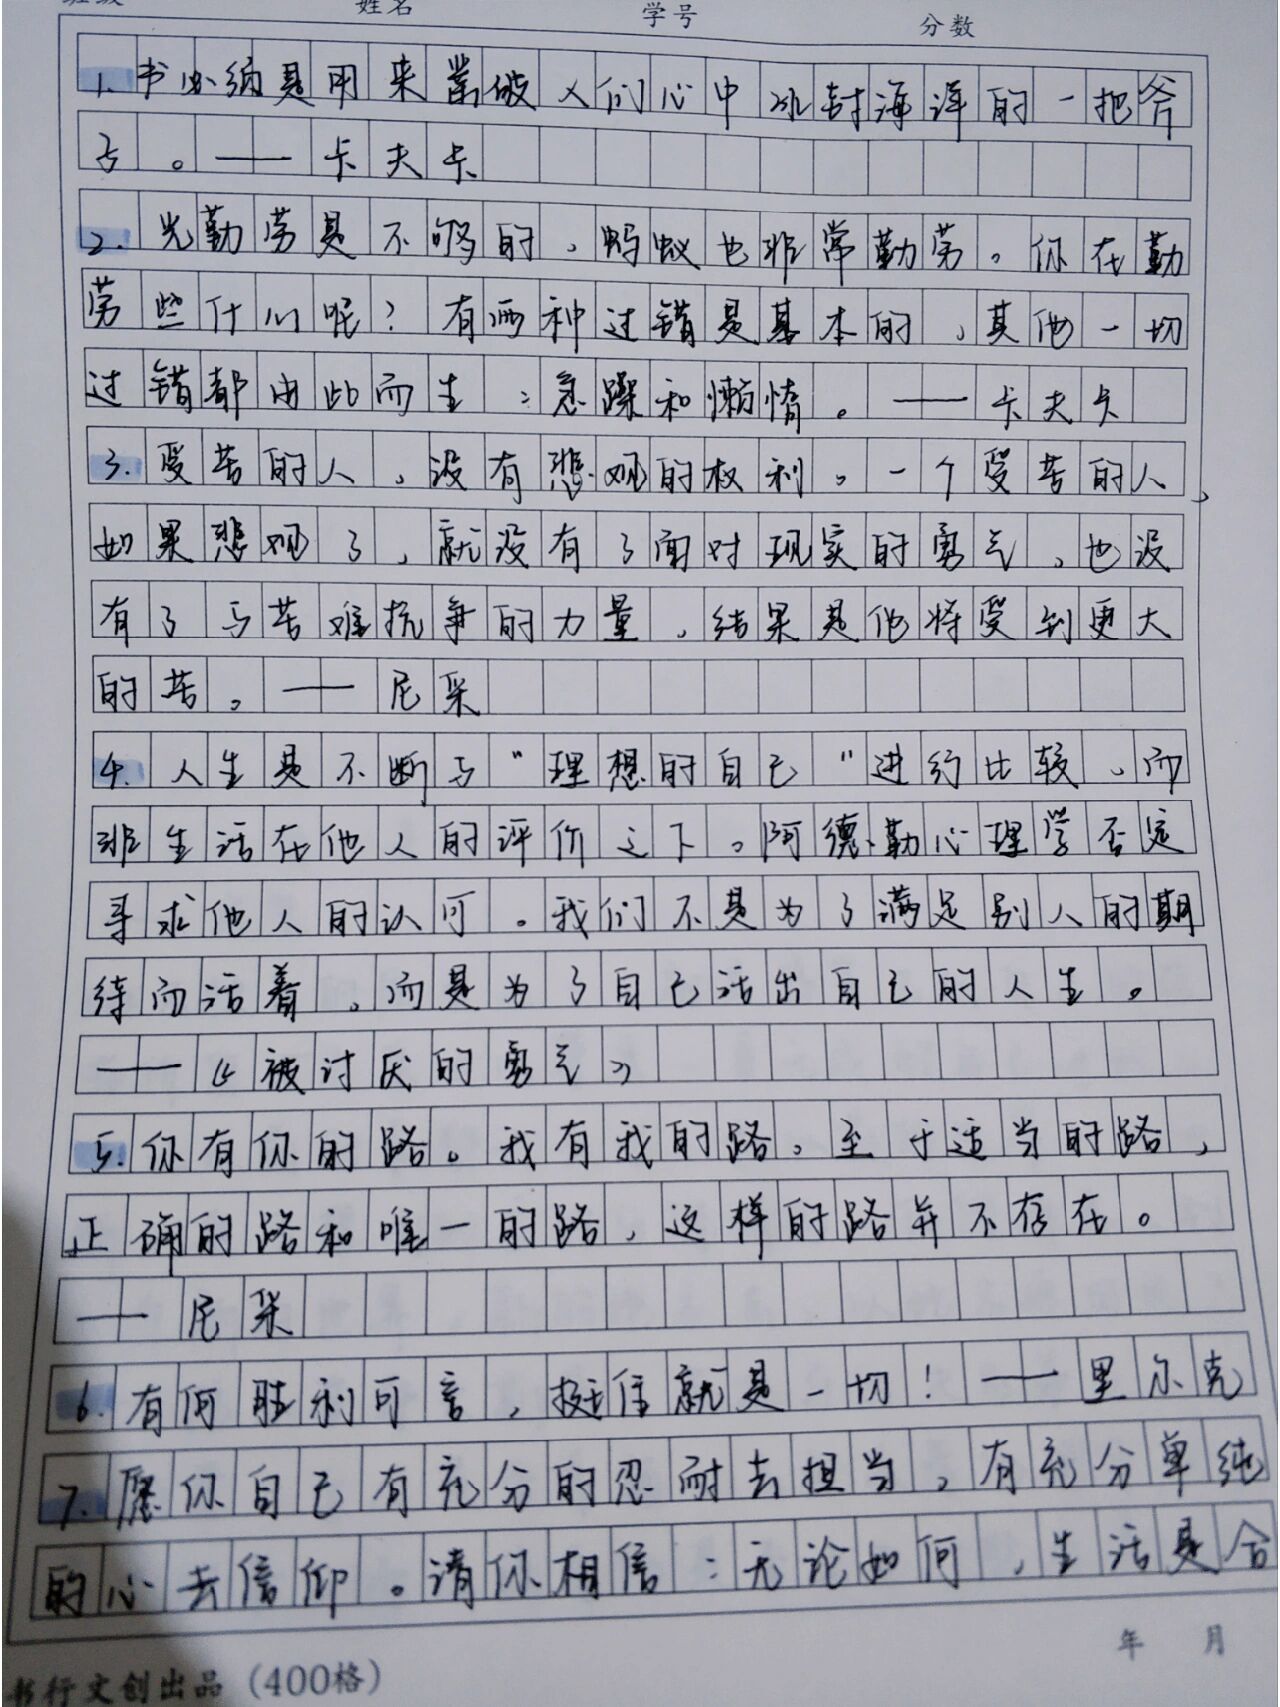 姓名 学号 分数
1.书必须是用来凿破人们心中冰封海洋的一把斧
子。——卡夫卡
2.光勤劳是不够的,蚂蚁也非常勤劳。你在勤
劳些什么呢?有两种过错是基本的,其他一切
过错都由此而生:急躁和懒惰。——卡夫卡
3.受苦的人,没有悲观的权利。一个受苦的人,
如果悲观了,就没有了面对现实的勇气,也没
有了与苦难抗争的力量,结果是他将受到更大
的苦。——尼采
4.人生是不断与“理想的自己”进行比较,而
非生活在他人的评价之下。阿德勒心理学否定
寻求他人的认可。我们不是为了满足别人的期
待而活着,而是为了自己活出自己的人生。
——《被讨厌的勇气》
5.你有你的路。我有我的路。至于适当的路,
正确的路和唯一的路,这样的路并不存在。
——尼采
6.有何胜利可言,挺住就是一切!——里尔克
7.愿你自己有充分的忍耐去担当,有充分单纯
的心去信仰。请你相信:无论如何,生活是合
年 月
书行文创出品(400格)